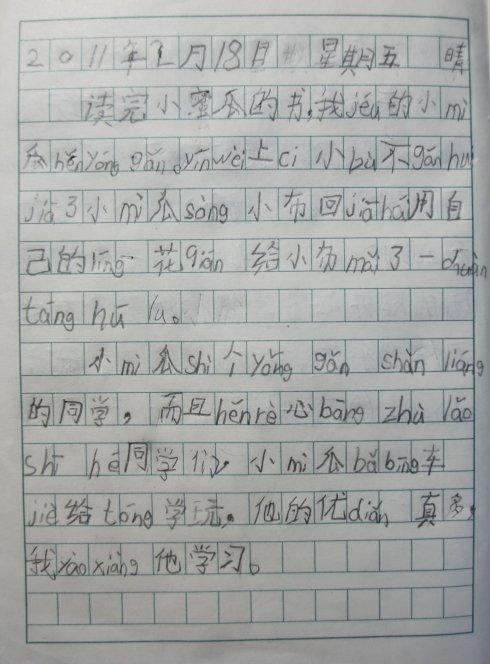 2011年2月18日 星期五 晴
读完小蜜瓜的书,我jéu的小mì
瓜hěnyǒng gǎn。yīnwèi上cì 小bù不gǎn huí
jiā了小mì瓜sòng 小布回jiā hái用自
己的líng 花qián 给小布mǎi了一chuàn
táng hú lu。
小mì瓜shì个yǒng gǎn shàn liáng
的同学,而且hěnrè心bāng zhù lǎo
shī hé同学们。小mì瓜bǎ bīng车
jiè给tóng学玩。他的优diǎn真多,
我yào xiàng他学习。